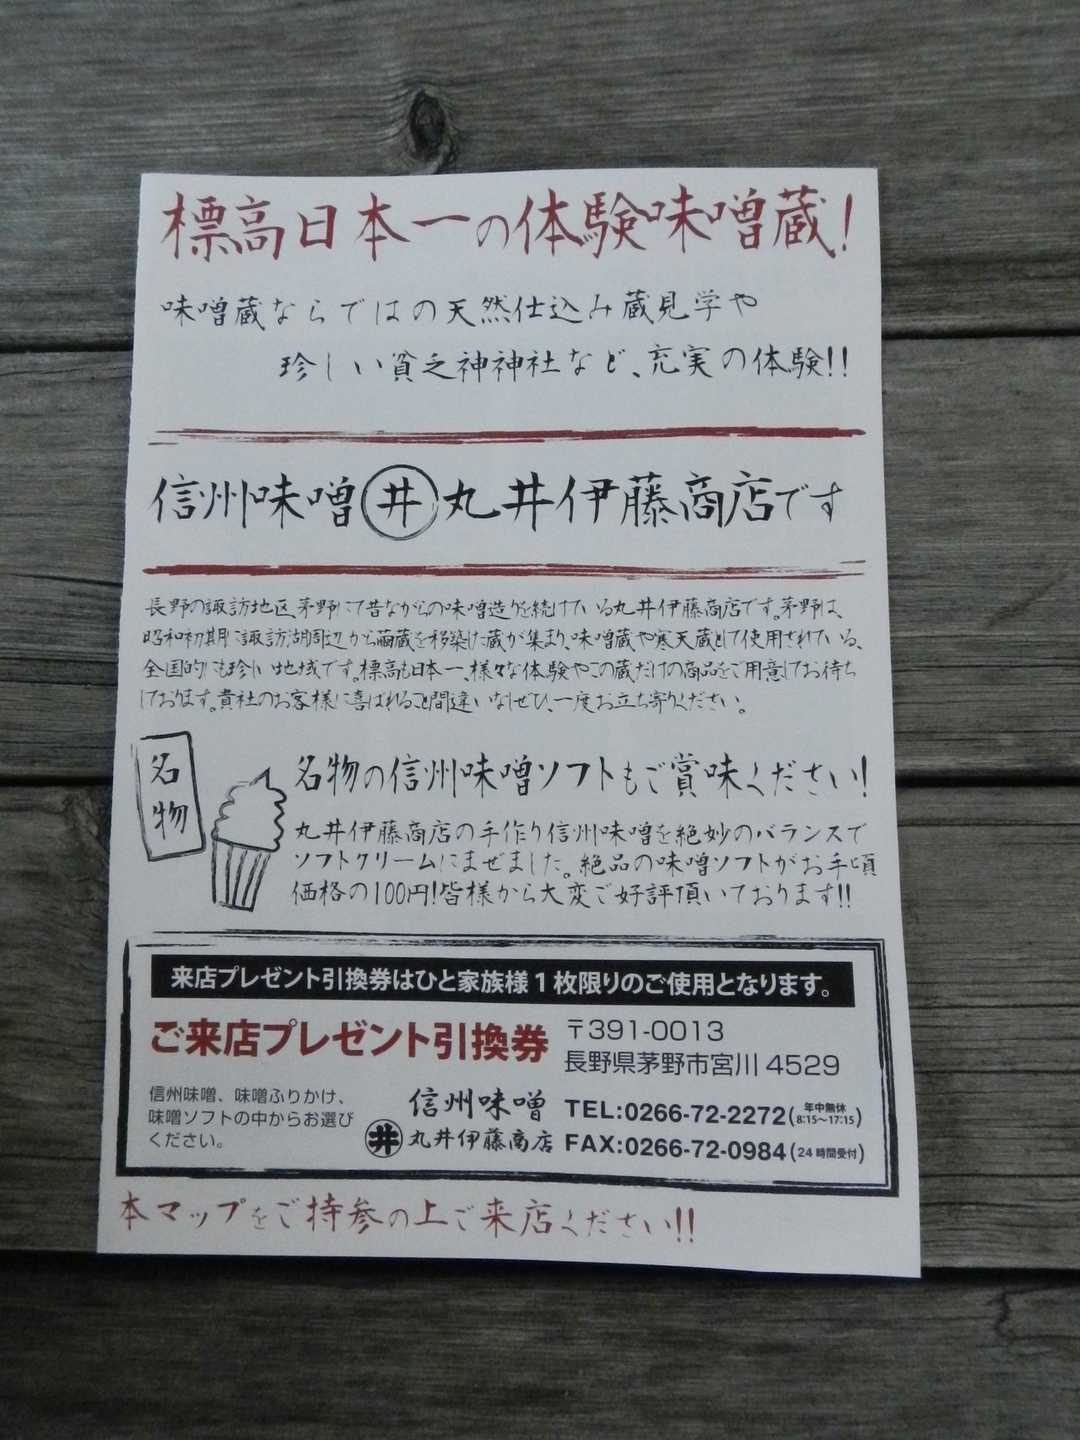 標高日本一の体験味噌蔵!
味噌蔵ならではの天然仕込み蔵見学や
珍しい貧乏神神社など、充実の体験!!
信州味噌 井 丸井伊藤商店です
長野の諏訪地区、茅野にて昔ながらの味噌造りを続けている丸井伊藤商店です。茅野は、
昭和初期に諏訪湖周辺から繭蔵を移築した蔵が集まり、味噌蔵や寒天蔵として使用されている、
全国的にも珍しい地域です。標高も日本一、様々な体験やこの蔵だけの商品をご用意してお待ち
しております。貴社のお客様に喜ばれること間違いなし!ぜひ、一度お立ち寄りください。
名物
名物の信州味噌ソフトもご賞味ください!
丸井伊藤商店の手作り信州味噌を絶妙のバランスで
ソフトクリームにまぜました。絶品の味噌ソフトがお手頃
価格の100円!皆様から大変ご好評頂いております!!
来店プレゼント引換券はひと家族様1枚限りのご使用となります。
ご来店プレゼント引換券
〒391-0013
長野県茅野市宮川4529
信州味噌、味噌ふりかけ、
味噌ソフトの中からお選び
ください。
信州味噌
井 丸井伊藤商店
TEL:0266-72-2272(年中無休 8:15~17:15)
FAX:0266-72-0984(24時間受付)
本マップをご持参の上ご来店ください!!